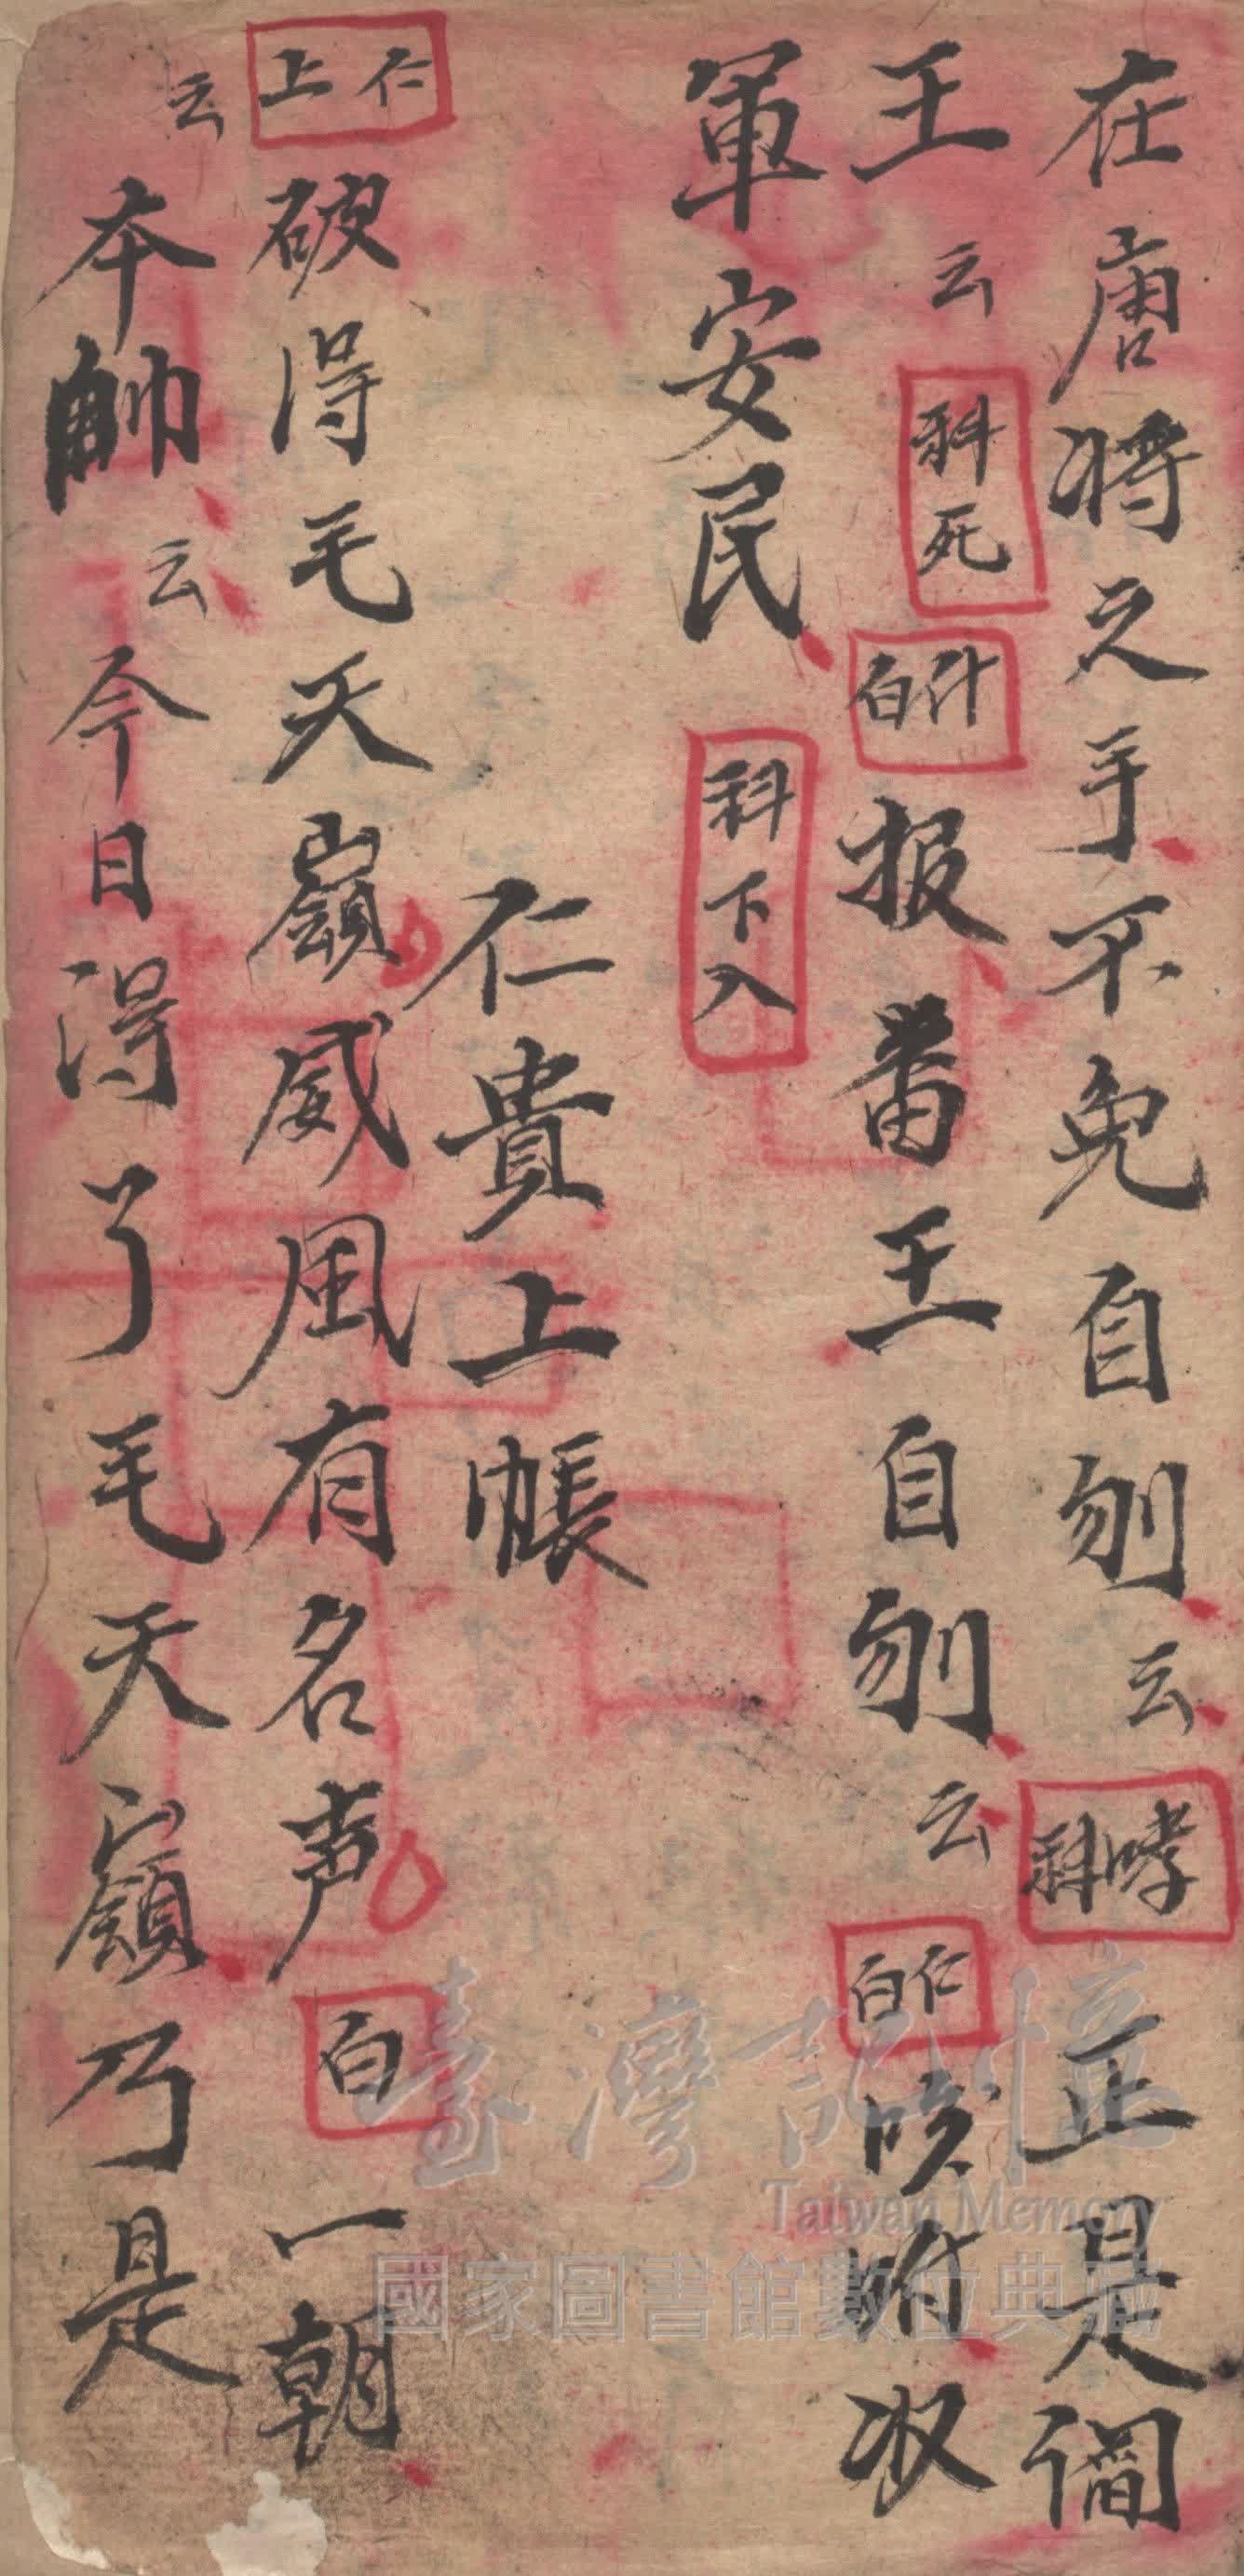 在唐將之手不免自刎云科哮正是誾
王云科死白什报番王自刎云白仁收
軍安民科下入
仁貴上帳
上仁破得毛天嶺威風有名声白一朝
云本帥云今日得了毛天嶺乃是
臺灣記憶
Taiwan Memory
國家圖書館數位典藏